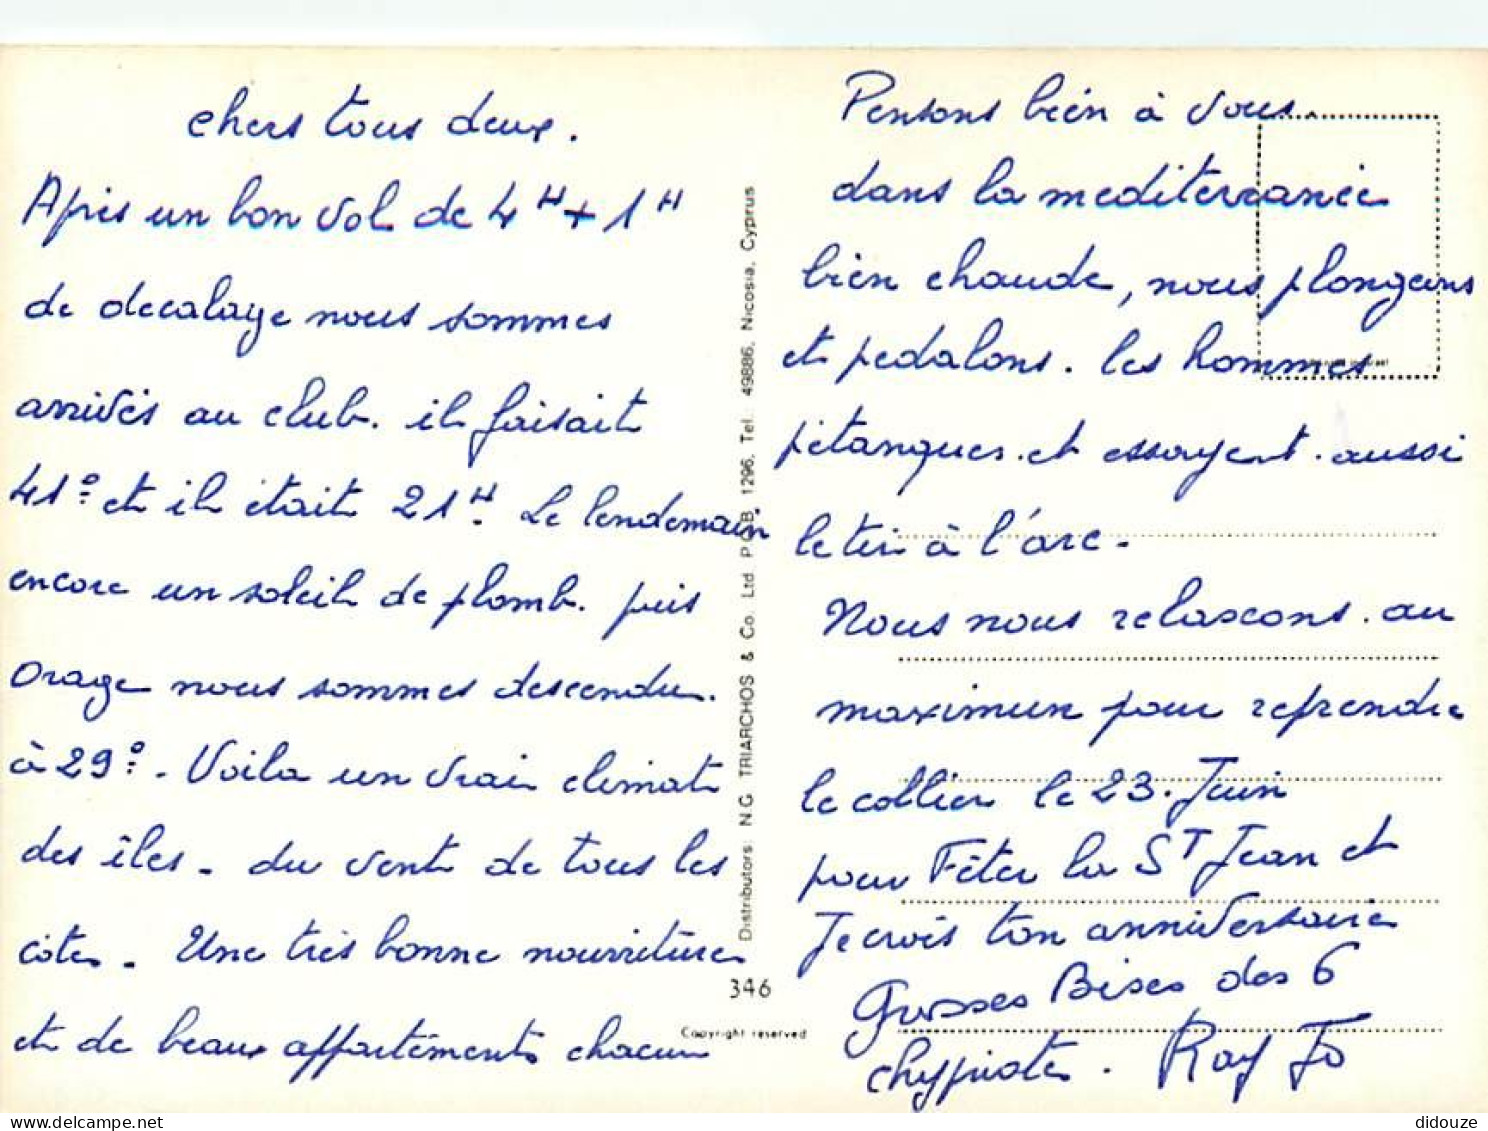 chers tous deux.
Après un bon vol de 4H + 1H
de decalage nous sommes
arrivés au club. il faisait
41° et il était 21H. Le lendemain
encore un soleil de plomb. puis
orage nous sommes descendu.
à 29°. Voila un vrai climat
des îles. du vent de tous les
côtés. Une très bonne nourriture
et de beaux appartéments chacun
Distributors: N.G. TRIARCHOS & Co. Ltd P.O.B. 1296, Tel. 49886, Nicosia, Cyprus
346
Copyright reserved
Pensons bien à vous.
dans la mediterranée
bien chaude, nous plongeons
et pedalons. les hommes
pétanques et essayent aussi
le tir à l'arc.
Nous nous relaxons au
maximum pour reprendre
le collier le 23 Juin
pour Fêter la ST Jean et
Je crois ton anniversaire
Grosses Bises des 6
chypriotes. Ray Jo
didouze